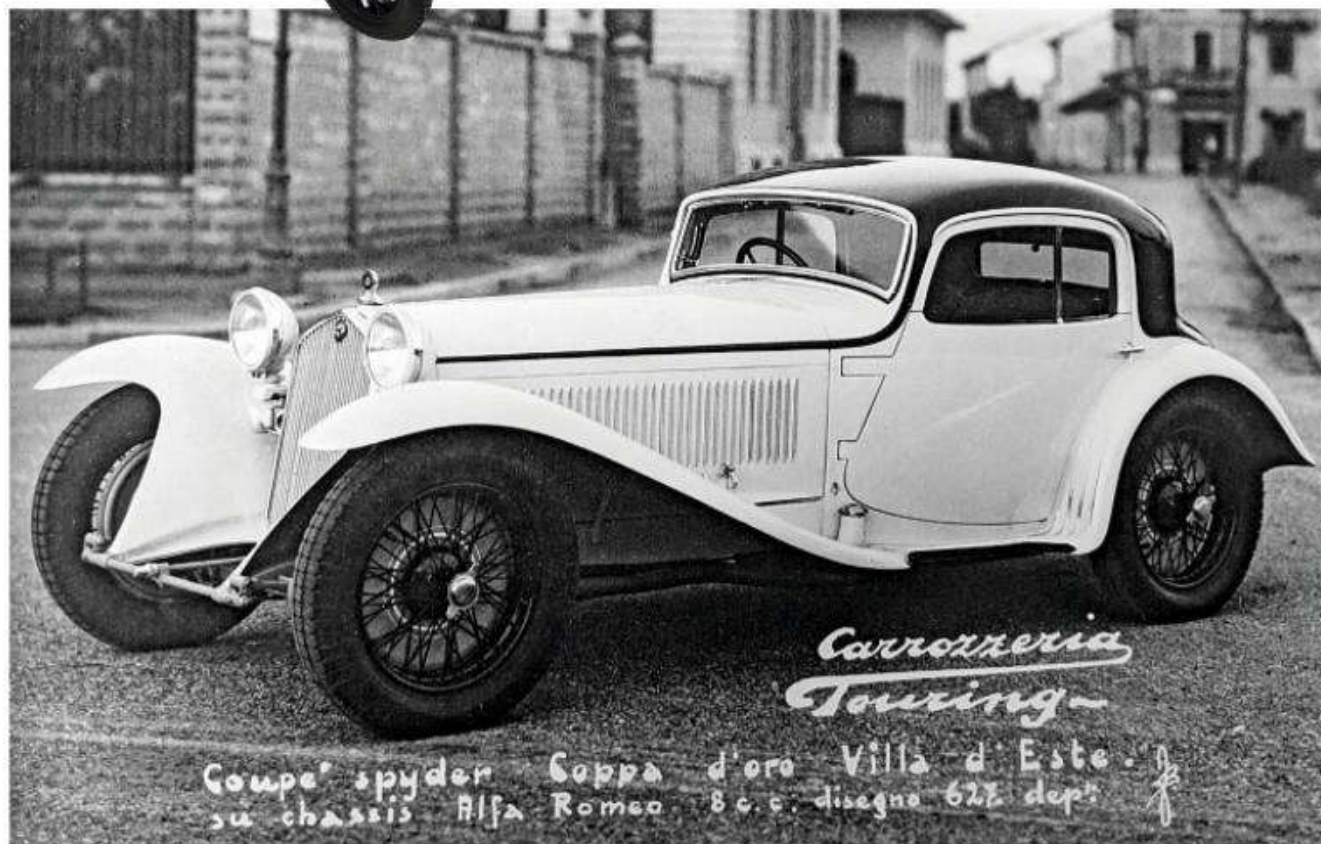 Carrozzeria
Touring
Coupe' spyder Coppa d'oro Villa d'Este.
su chassis Alfa Romeo. 8 c.c. disegno 627 dep.